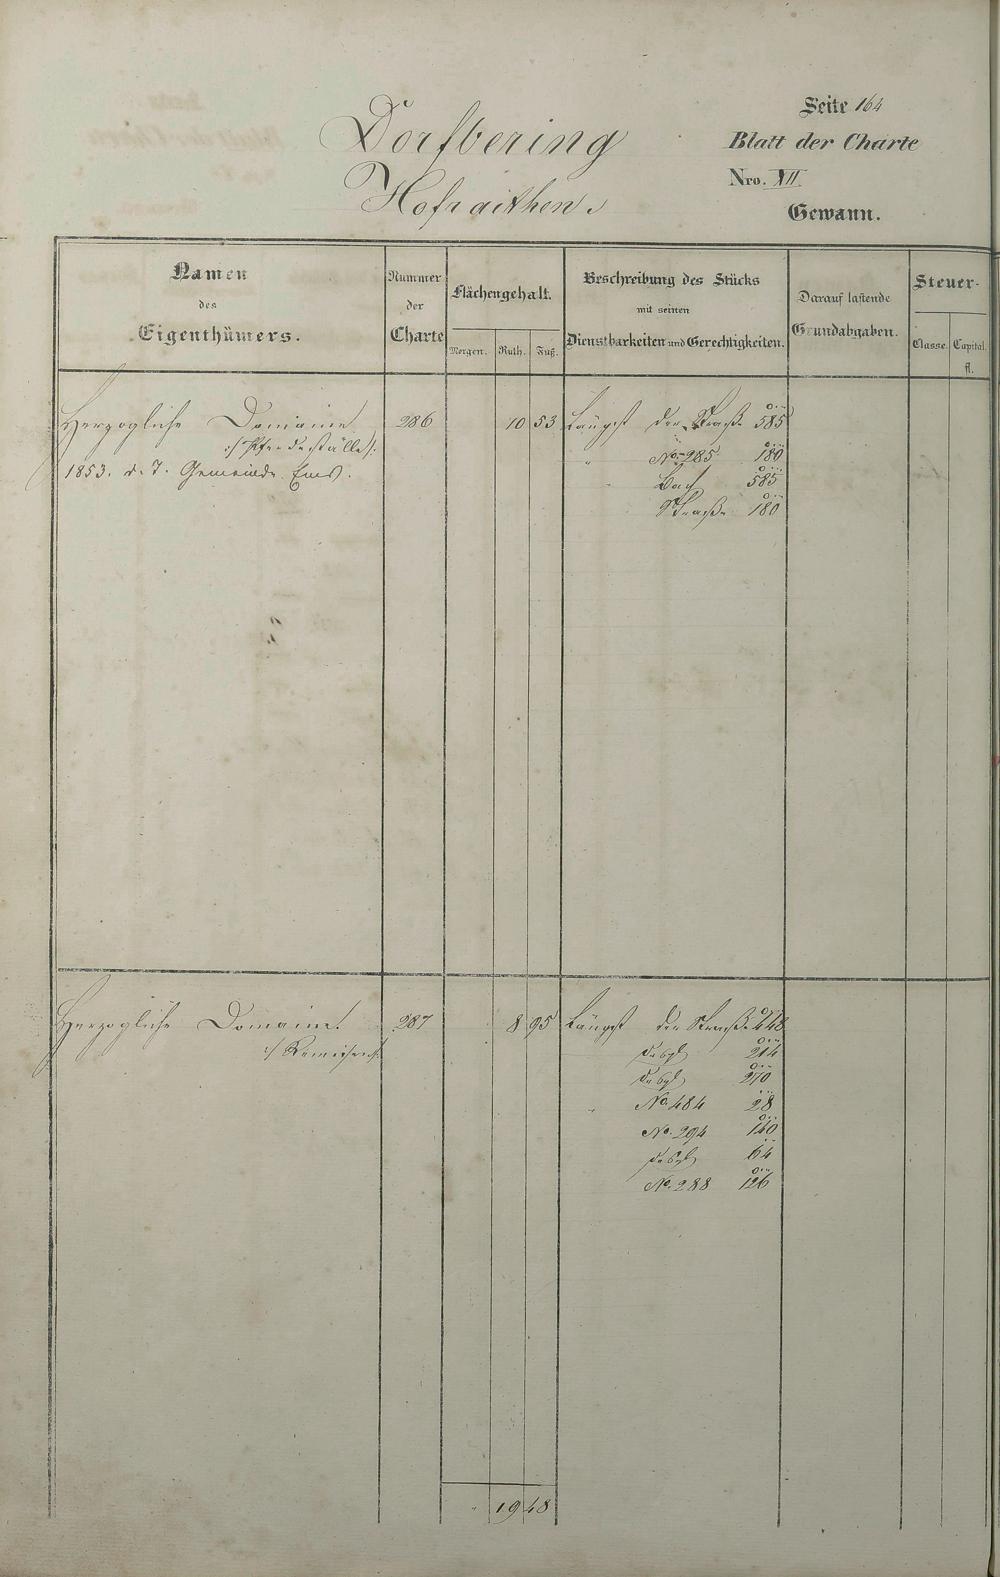 Seite 164
Dorfbering
Blatt der Charte
Hofraithen.
Nro. XII.
Gewann.
Namen des Eigenthümers.
Nummer der Charte
Flächengehalt.
Morgen. Ruth. Fuß.
Beschreibung des Stücks mit seinen Dienstbarkeiten und Gerechtigkeiten.
Darauf lastende Grundabgaben.
Steuer-
Classe. Capital. fl.
Herzogliche Domaine 286 10 53 Längst der Straße 585
:/ Pferdeställe /: " No. 285 180
1853. d. 7. Gemeinde Ems. " Bach 585
Straße 180
Herzogliche Domaine. 287 8 95 Längst der Straße 448
:/ Remisen /: desgl 214
desgl 270
" No. 484 28
No. 294 140
desgl 64
No. 288 126
" 19 48